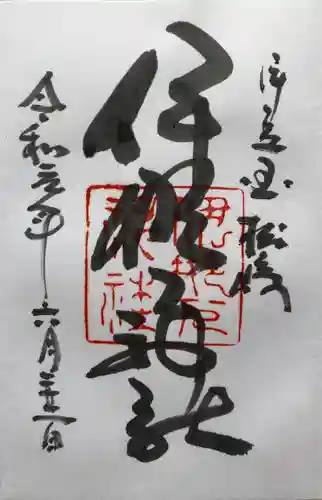 伊豆国 松崎
伊那下神社
令和元年 六月二十一日